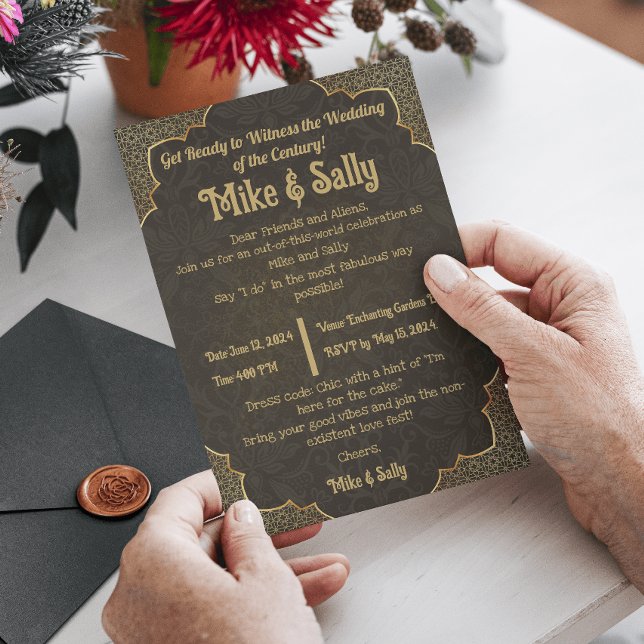 Get Ready to Witness the Wedding
of the Century!
Mike & Sally
Dear Friends and Aliens,
Join us for an out-of-this-world celebration as
Mike and Sally
say "I do" in the most fabulous way
possible!
Date June 12, 2024
Time 4:00 PM
Venue Enchanting Gardens
RSVP by May 15, 2024.
Dress code: Chic with a hint of "I'm
here for the cake."
Bring your good vibes and join the non-
existent love fest!
Cheers,
Mike & Sally